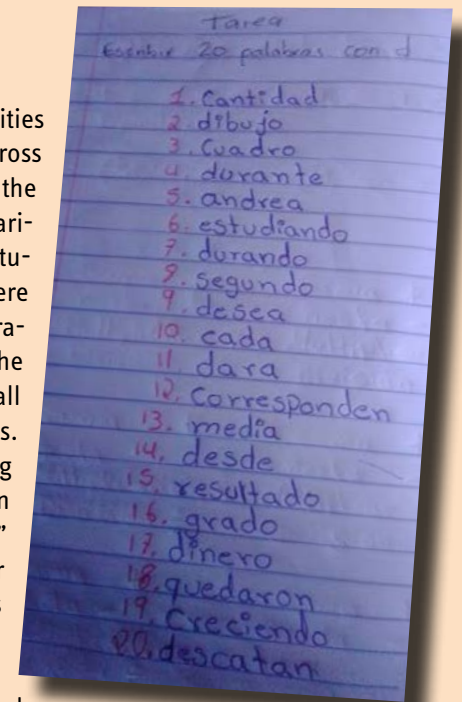 ities
ross
the
ari-
tu-
ere
ra-
he
all
s.
g
n
”
r
s
Tarea
Escribir 20 palabras con d
1. Cantidad
2. dibujo
3. Cuadro
4. durante
5. andrea
6. estudiando
7. durando
8. segundo
9. desea
10. cada
11. dara
12. Corresponden
13. media
14. desde
15. resultado
16. grado
17. dinero
18. quedaron
19. Creciendo
20. descatan